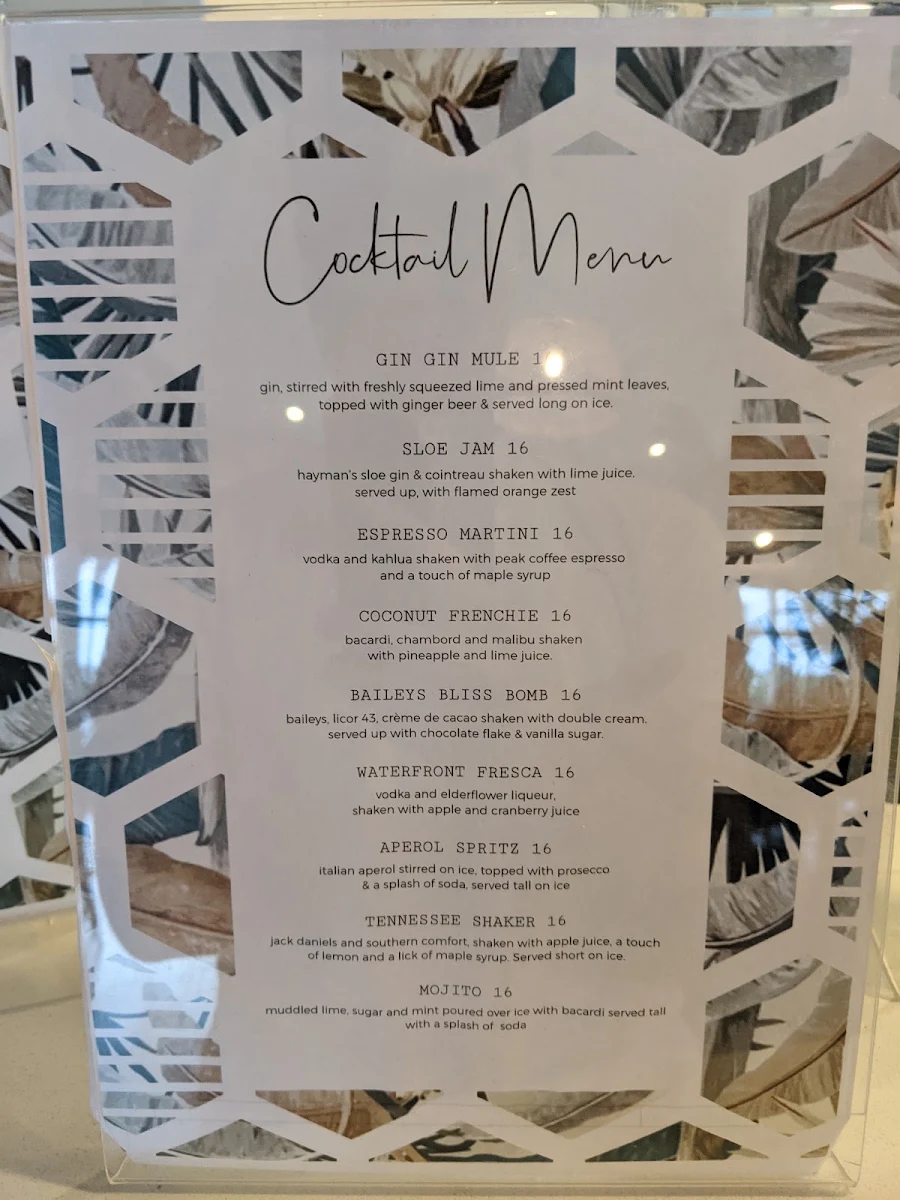 Cocktail Menu
GIN GIN MULE
gin, stirred with freshly squeezed lime and pressed mint leaves,
topped with ginger beer & served long on ice.
SLOE JAM 16
hayman's sloe gin & cointreau shaken with lime juice.
served up, with flamed orange zest
ESPRESSO MARTINI 16
vodka and kahlua shaken with peak coffee espresso
and a touch of maple syrup
COCONUT FRENCHIE 16
bacardi, chambord and malibu shaken
with pineapple and lime juice.
BAILEYS BLISS BOMB 16
baileys, licor 43, crème de cacao shaken with double cream.
served up with chocolate flake & vanilla sugar.
WATERFRONT FRESCA 16
vodka and elderflower liqueur,
shaken with apple and cranberry juice
APEROL SPRITZ 16
italian aperol stirred on ice, topped with prosecco
& a splash of soda, served tall on ice
TENNESSEE SHAKER 16
jack daniels and southern comfort, shaken with apple juice, a touch
of lemon and a lick of maple syrup. Served short on ice.
MOJITO 16
muddled lime, sugar and mint poured over ice with bacardi served tall
with a splash of soda